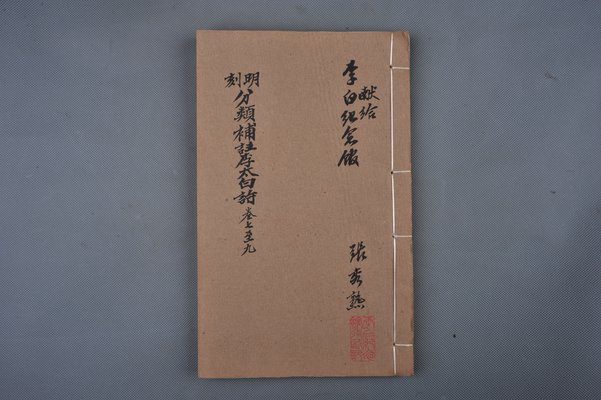 献给
李白纪念馆
張秀熟
明刻
分類補註李太白詩 卷七至九